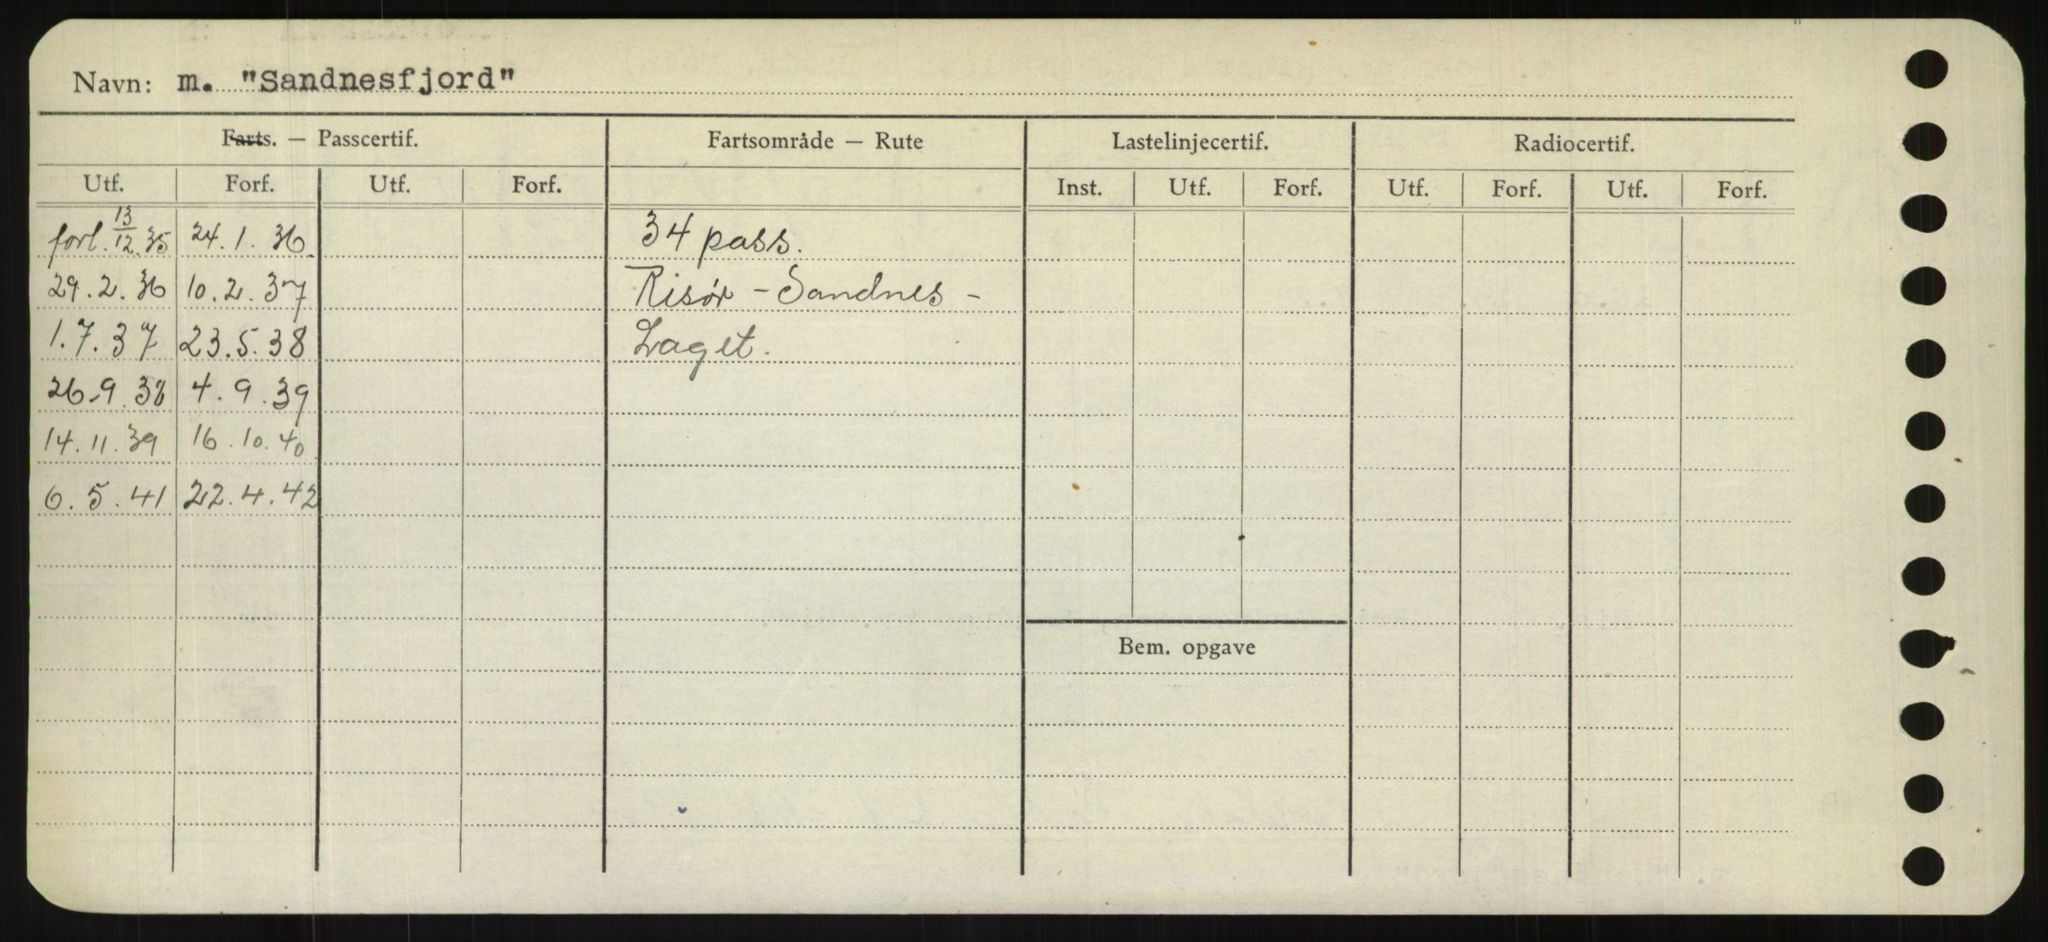 Navn: m. "Sandnesfjord"
Farts. — Passcertif. Fartsområde — Rute Lastelinjecertif. Radiocertif.
Utf. Forf. Utf. Forf. Inst. Utf. Forf. Utf. Forf. Utf. Forf.
forl. 13/12.35 24.1.36. 34 pass.
29.2.36 10.2.37 Risør - Sandnes -
1.7.37 23.5.38 Laget.
26.9.38 4.9.39
14.11.39 16.10.40
6.5.41 22.4.42
Bem. opgave